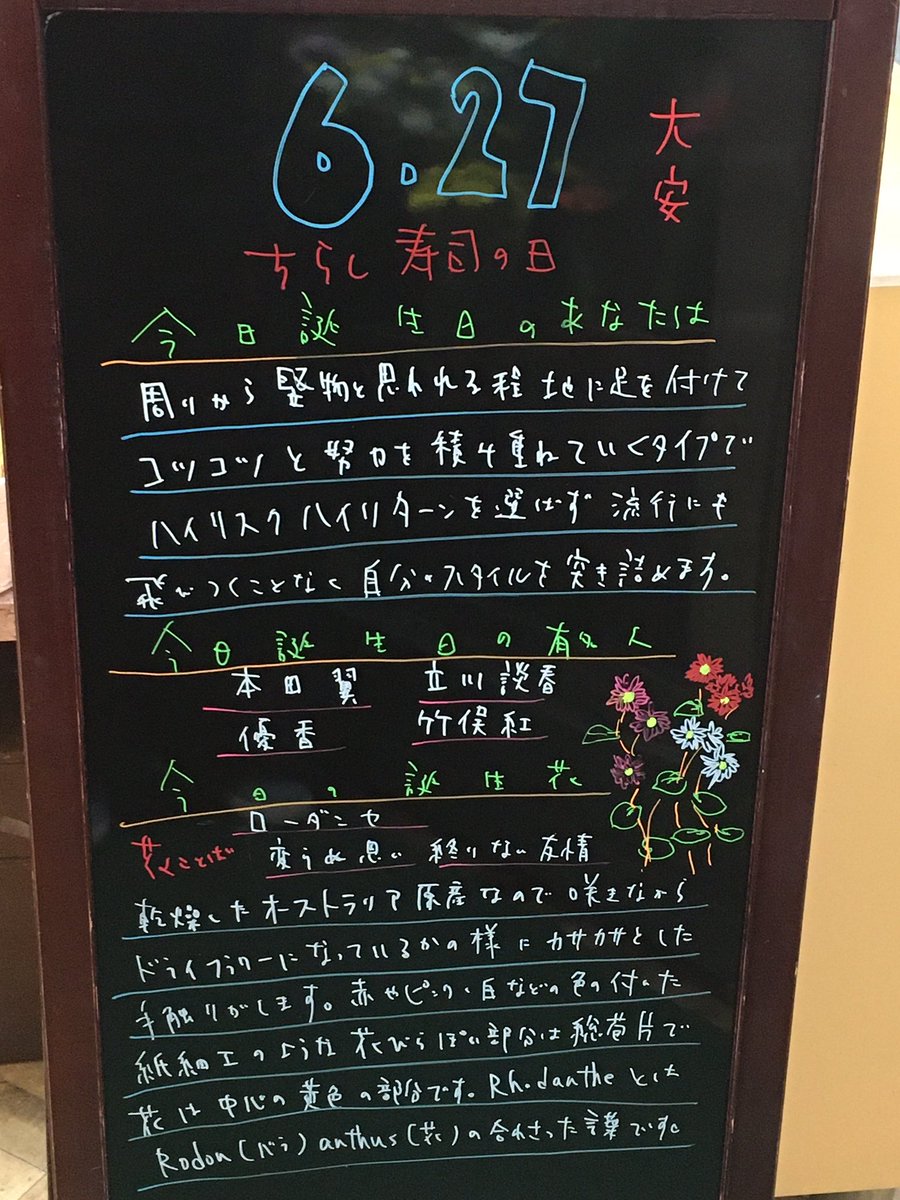 6.27
大安
ちらし寿司の日
今日誕生日のあなたは
周りから堅物と思われる程 地に足を付けて
コツコツと努力を積み重ねていくタイプで
ハイリスクハイリターンを選ばず 流行にも
飛びつくことなく 自分のスタイルを突き詰めます。
今日誕生日の有名人
本田翼 立川談春
優香 竹俣紅
今日の誕生花
ローダンセ
花ことば 変らぬ思い 終りない友情
乾燥したオーストラリア原産なので咲きながら
ドライフラワーになっているかの様にカサカサとした
手触りがします。赤やピンク、白などの色の付いた
紙細工のような花びらぽい部分は総苞片で
花は中心の黄色の部分です。Rhodantheとは
Rodon(バラ) anthus(花)の合わさった言葉です。